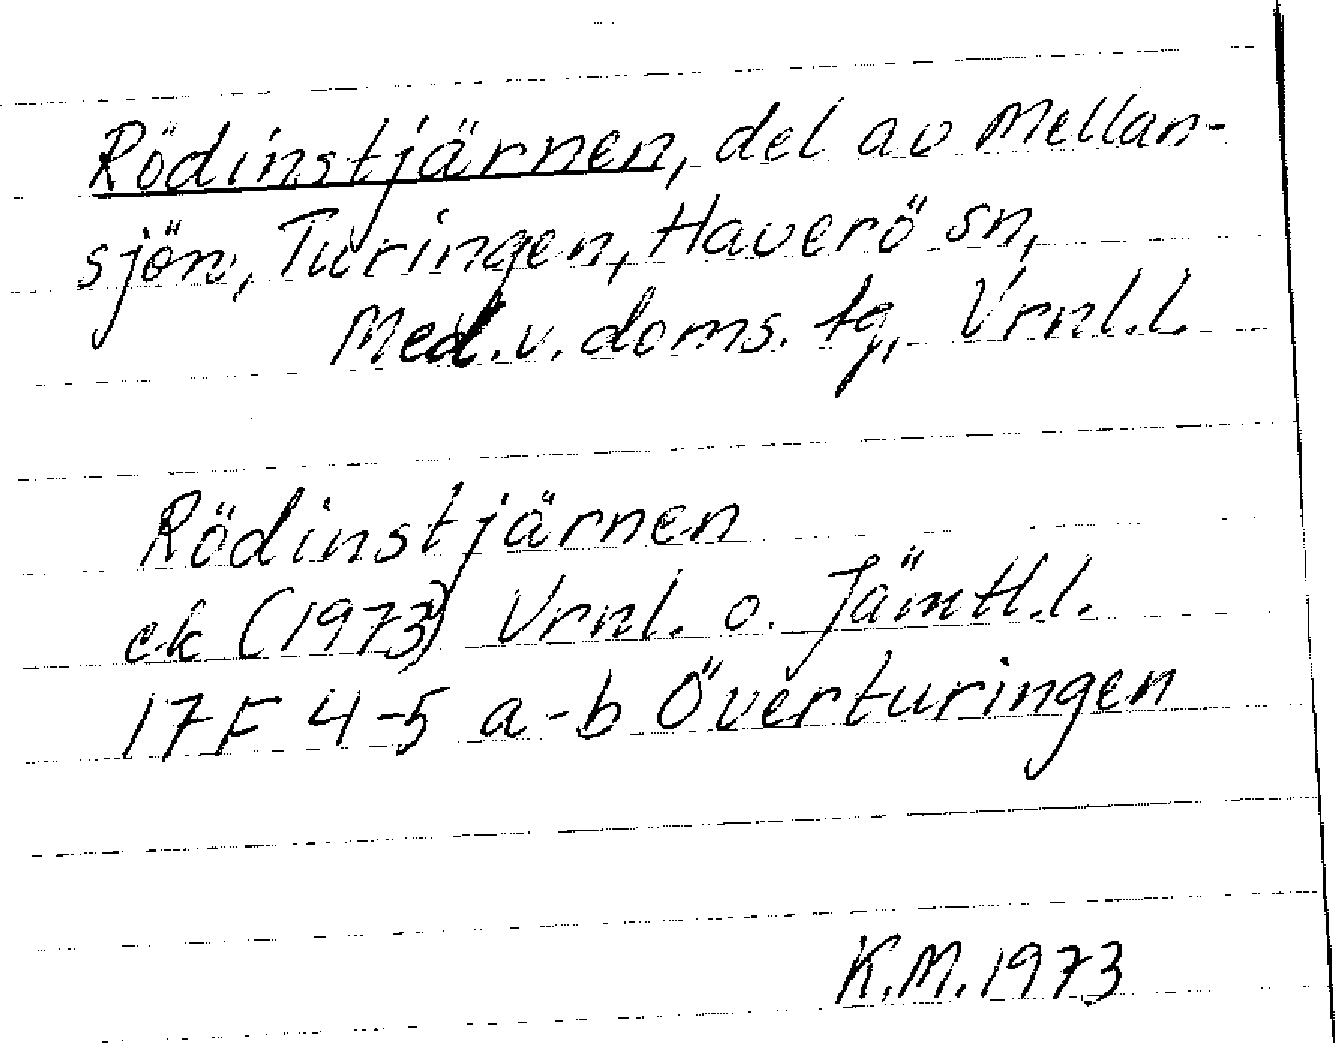 Rödinstjärnen, del av Mellan-
sjön, Turingen, Haverö sn,
Med.v.doms. tg, Vrnl.l.
Rödinstjärnen
ek (1973) Vrnl. o. Jämtl.l.
17F 4-5 a-b Överturingen
K.M.1973